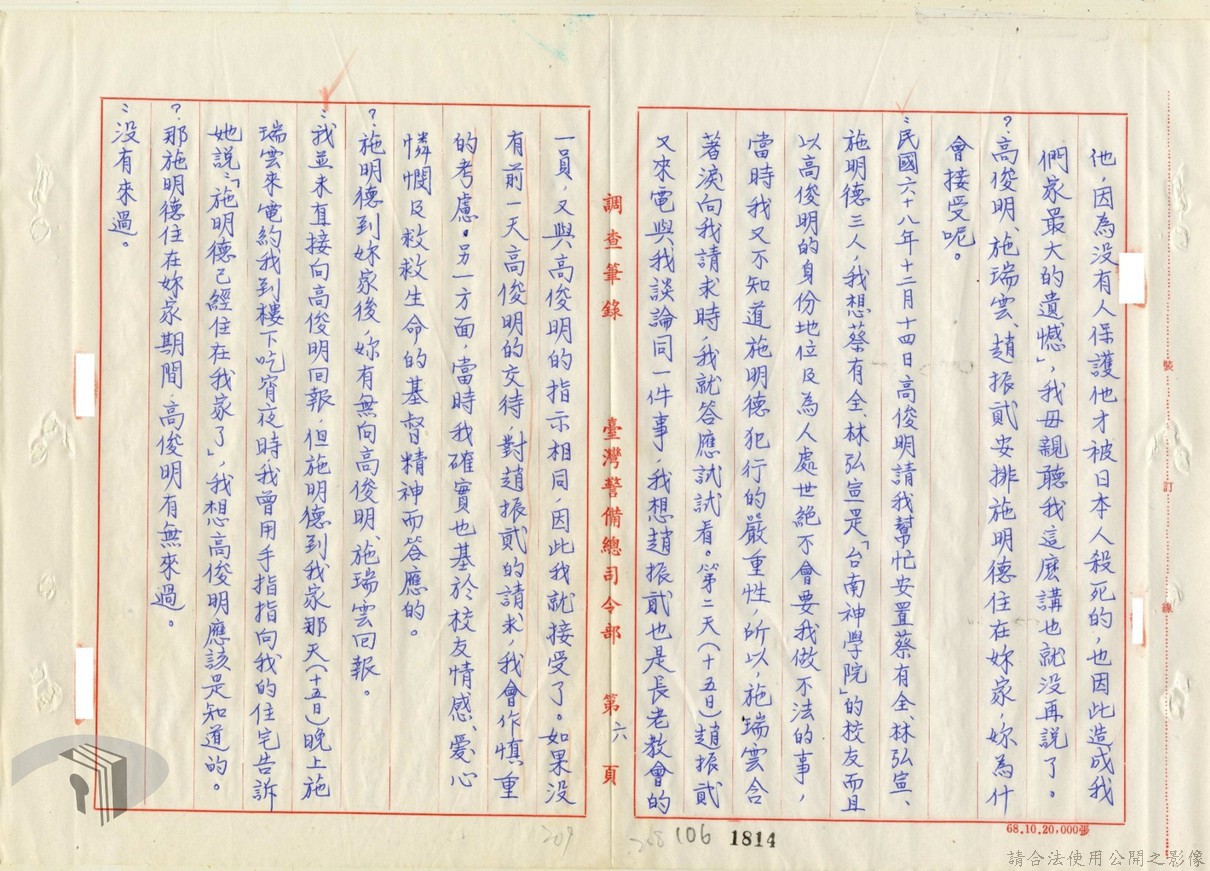 他，因為没有人保護他才被日本人殺死的，也因此造成我
們家最大的遺憾」，我毋親聽我這麽講也就没再説了。
？高俊明、施瑞雲、趙振貳安排施明德住在妳家，妳為什
會接受呢。
：民國六十八年十二月十四日高俊明請我幫忙安置蔡有全、林弘宣、
施明德三人，我想蔡有全、林弘宣是「台南神學院」的校友而且
以高俊明的身份地位及為人處世絕不會要我做不法的事，
當時我又不知道施明德犯行的嚴重性，所以，施瑞雲含
著淚向我請求時，我就答應試試看。第二天（十五日）趙振貳
又來電與我談論同一件事，我想趙振貳也是長老教會的
調查筆錄 臺灣警備總司令部 第六頁
一員，又與高俊明的指示相同，因此我就接受了。如果没
有前一天高俊明的交待，對趙振貳的請求，我會作慎重
的考慮。另一方面，當時我確實也基於校友情感、愛心
憐憫及救救生命的基督精神而答應的。
？施明德到妳家後，妳有無向高俊明、施瑞雲回報。
：我並未直接向高俊明回報，但施明德到我家那天（十五日）晚上施
瑞雲來電約我到樓下吃宵夜時我曾用手指指向我的住宅告訴
她説：「施明德已經住在我家了」，我想高俊明應該是知道的。
？那施明德住在妳家期間，高俊明有無來過。
：没有來過。
裝 訂 線
68.10.20,000張
106 1814
209
請合法使用公開之影像